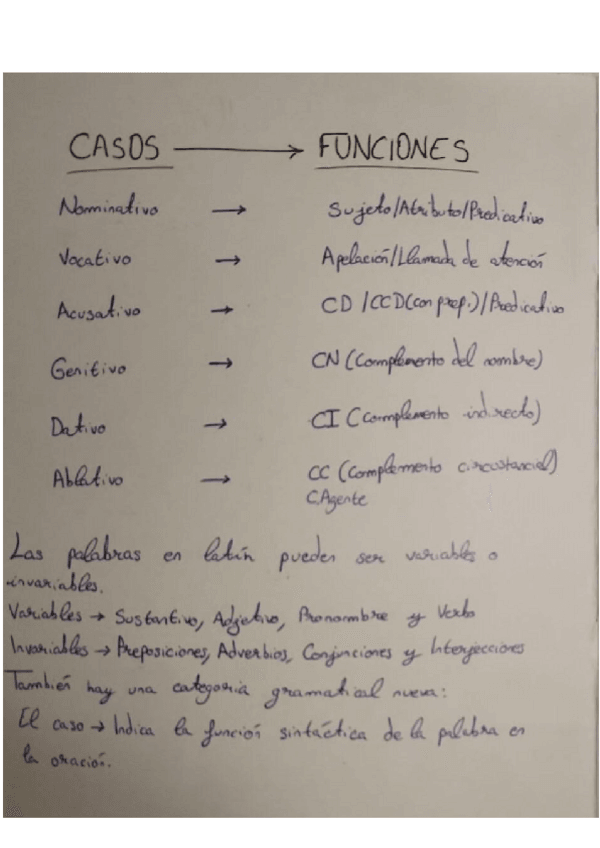 CASOS → FUNCIONES
Nominativo → Sujeto/Atributo/Predicativo
Vocativo → Apelación/Llamada de atención
Acusativo → CD/CCD(con prep.)/Predicativo
Genitivo → CN (Complemento del nombre)
Dativo → CI (Complemento indirecto)
Ablativo → CC (Complemento circustancial)
C.Agente
Las palabras en latín pueden ser variables o
invariables.
Variables → Sustantivo, Adjetivo, Pronombre y Verbo
Invariables → Preposiciones, Adverbios, Conjunciones y Interjecciones
También hay una categoría gramatical nueva:
El caso → Indica la función sintáctica de la palabra en
la oración.